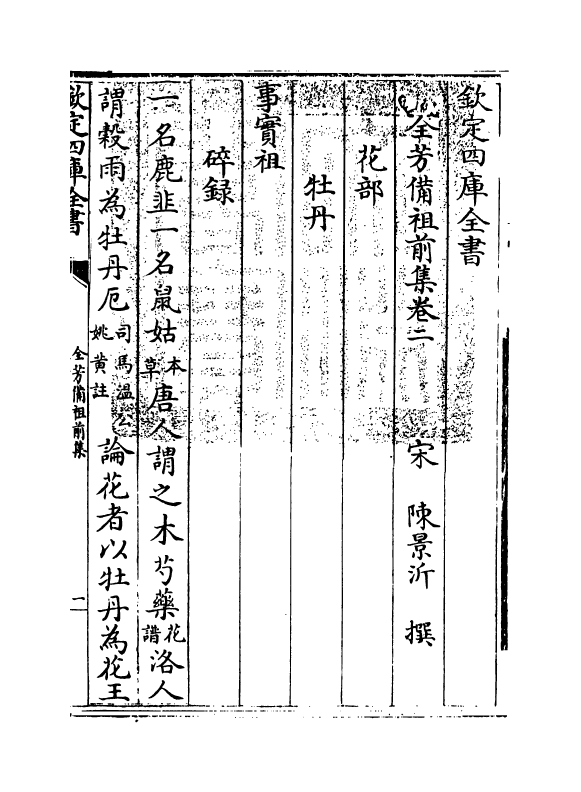 欽定四庫全書
全芳備祖前集卷二 宋 陳景沂 撰
花部
牡丹
事實祖
碎録
一名鹿韭一名鼠姑本草唐人謂之木芍藥花譜洛人
謂穀雨為牡丹厄司馬溫公姚黄註論花者以牡丹為花王
欽定四庫全書
全芳備祖前集